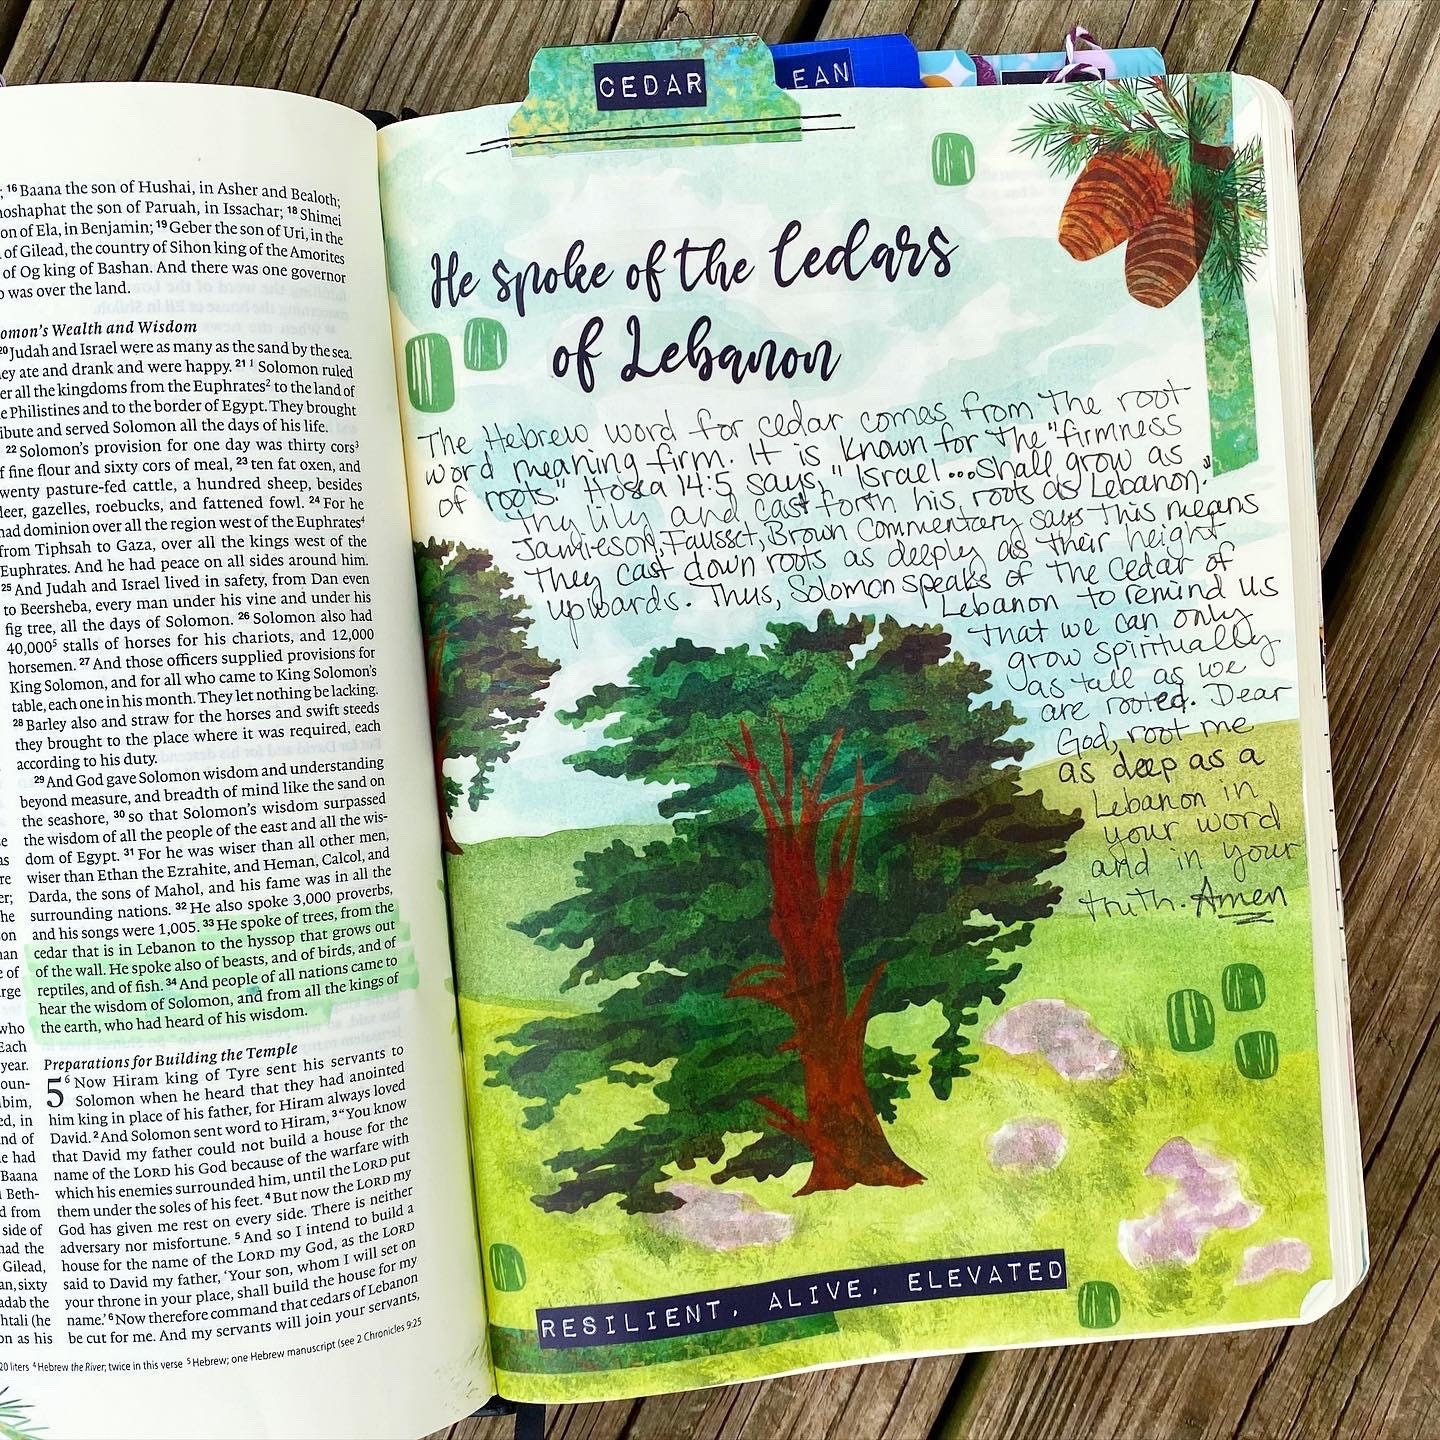 CEDAR
EAN
; 16 Baana the son of Hushai, in Asher and Bealoth;
hoshaphat the son of Paruah, in Issachar; 18 Shimei
on of Ela, in Benjamin; 19 Geber the son of Uri, in the
of Gilead, the country of Sihon king of the Amorites
of Og king of Bashan. And there was one governor
o was over the land.
omon's Wealth and Wisdom
20 Judah and Israel were as many as the sand by the sea.
ey ate and drank and were happy. 21 1 Solomon ruled
er all the kingdoms from the Euphrates2 to the land of
e Philistines and to the border of Egypt. They brought
ibute and served Solomon all the days of his life.
22 Solomon's provision for one day was thirty cors3
f fine flour and sixty cors of meal, 23 ten fat oxen, and
wenty pasture-fed cattle, a hundred sheep, besides
deer, gazelles, roebucks, and fattened fowl. 24 For he
had dominion over all the region west of the Euphrates4
from Tiphsah to Gaza, over all the kings west of the
Euphrates. And he had peace on all sides around him.
25 And Judah and Israel lived in safety, from Dan even
to Beersheba, every man under his vine and under his
fig tree, all the days of Solomon. 26 Solomon also had
40,0005 stalls of horses for his chariots, and 12,000
horsemen. 27 And those officers supplied provisions for
King Solomon, and for all who came to King Solomon's
table, each one in his month. They let nothing be lacking.
28 Barley also and straw for the horses and swift steeds
they brought to the place where it was required, each
according to his duty.
29 And God gave Solomon wisdom and understanding
beyond measure, and breadth of mind like the sand on
the seashore, 30 so that Solomon's wisdom surpassed
the wisdom of all the people of the east and all the wis-
dom of Egypt. 31 For he was wiser than all other men,
wiser than Ethan the Ezrahite, and Heman, Calcol, and
Darda, the sons of Mahol, and his fame was in all the
surrounding nations. 32 He also spoke 3,000 proverbs,
and his songs were 1,005. 33 He spoke of trees, from the
cedar that is in Lebanon to the hyssop that grows out
of the wall. He spoke also of beasts, and of birds, and of
reptiles, and of fish. 34 And people of all nations came to
hear the wisdom of Solomon, and from all the kings of
the earth, who had heard of his wisdom.
Preparations for Building the Temple
5 6 Now Hiram king of Tyre sent his servants to
Solomon when he heard that they had anointed
him king in place of his father, for Hiram always loved
David. 2 And Solomon sent word to Hiram, 3 "You know
that David my father could not build a house for the
name of the LORD his God because of the warfare with
which his enemies surrounded him, until the LORD put
them under the soles of his feet. 4 But now the LORD my
God has given me rest on every side. There is neither
adversary nor misfortune. 5 And so I intend to build a
house for the name of the LORD my God, as the LORD
said to David my father, 'Your son, whom I will set on
your throne in your place, shall build the house for my
name.' 6 Now therefore command that cedars of Lebanon
be cut for me. And my servants will join your servants,
20 liters 4 Hebrew the River; twice in this verse 5 Hebrew; one Hebrew manuscript (see 2 Chronicles 9:25
He spoke of the Cedars
of Lebanon
The Hebrew word for cedar comes from the root
word meaning firm. It is known for the "firmness
of roots." Hosea 14:5 says, "Israel...shall grow as
thy lily and cast forth his roots as Lebanon."
Jamieson, Fausset, Brown Commentary says this means
they cast down roots as deeply as their height
upwards. Thus, Solomon speaks of the Cedar of
Lebanon to remind us
that we can only
grow spiritually
as tall as we
are rooted. Dear
God, root me
as deep as a
Lebanon in
your word
and in your
truth. Amen
RESILIENT, ALIVE, ELEVATED